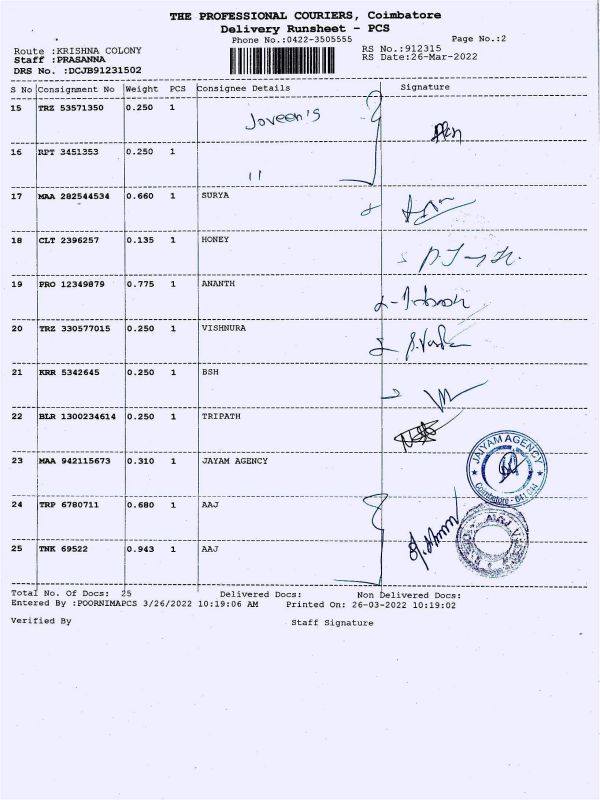 THE PROFESSIONAL COURIERS, Coimbatore
Delivery Runsheet - PCS
Phone No.:0422-3505555 Page No.:2
Route :KRISHNA COLONY RS No.:912315
Staff :PRASANNA RS Date:26-Mar-2022
DRS No. :DCJB91231502
S No Consignment No Weight PCS Consignee Details Signature
15 TRZ 53571350 0.250 1 Joveen's
16 RPT 3451353 0.250 1 "
17 MAA 282544534 0.660 1 SURYA
18 CLT 2396257 0.135 1 HONEY
19 PRO 12349879 0.775 1 ANANTH
20 TRZ 330577015 0.250 1 VISHNURA
21 KRR 5342645 0.250 1 BSH
22 BLR 1300234614 0.250 1 TRIPATH
23 MAA 942115673 0.310 1 JAYAM AGENCY
JAIYAM AGENCY
Coimbatore - 641 014
24 TRP 6780711 0.680 1 AAJ
25 TNK 69522 0.943 1 AAJ
Total No. Of Docs: 25 Delivered Docs: Non Delivered Docs:
Entered By :POORNIMAPCS 3/26/2022 10:19:06 AM Printed On: 26-03-2022 10:19:02
Verified By Staff Signature